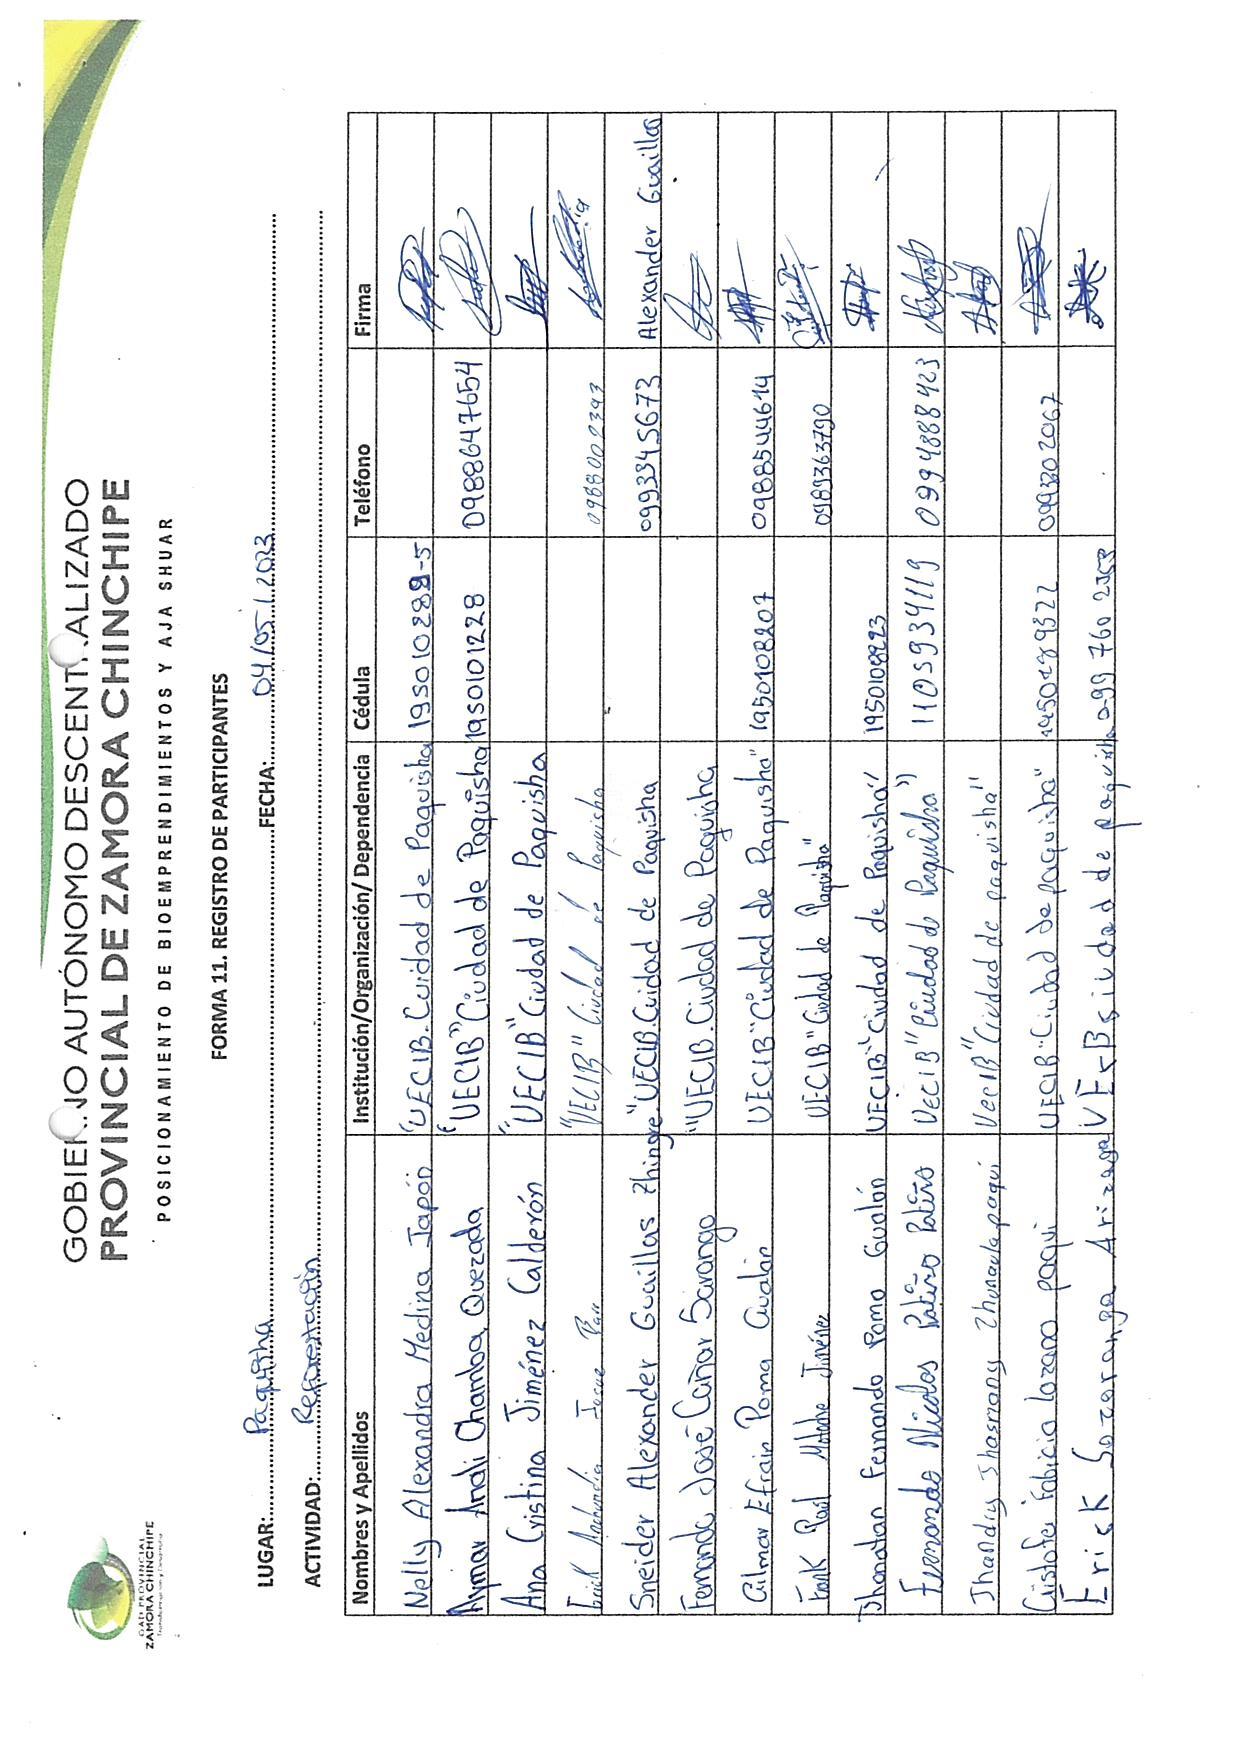 GOBIERNO AUTÓNOMO DESCENTRALIZADO
PROVINCIAL DE ZAMORA CHINCHIPE
POSICIONAMIENTO DE BIOEMPRENDIMIENTOS Y AJA SHUAR
GAD PROVINCIAL
ZAMORA CHINCHIPE
FORMA 11. REGISTRO DE PARTICIPANTES
LUGAR: Paquisha FECHA: 04/05/2023
ACTIVIDAD: Reforestación
Nombres y Apellidos Institución/Organización/ Dependencia Cédula Teléfono Firma
Nelly Alexandra Medina Japón "UECIB. Cuidad de Paquisha 195010289-5
Aymar Anali Chamba Quezada "UECIB" Ciudad de Paquisha 1950101228 0988647654
Ana Cristina Jiménez Calderón "UECIB" Ciudad de Paquisha
"UECIB" Ciudad de Paquisha 0988002393
Sneider Alexander Guaillas Zhingre "UECIB. Cuidad de Paquisha 0993345673 Alexander Guaillas
Fernando José Cañar Sarango "UECIB. Ciudad de Paquisha
Gilmar Efrain Poma Gualán UECIB "Ciudad de Paquisha" 1950108207 0988544614
Frank Paúl Jiménez UECIB "Ciudad de Paquisha" 0989363790
Jhonatan Fernando Pomo Gualón UECIB "Ciudad de Paquisha" 1950108223
Fernando Nicolas Patiño Patiño UECIB "Ciudad d Paquisha" 1105934119 0994888423
Jhandry Jhasmany Zhunaula paqui UECIB "Ciudad de paquisha"
Cristofer Fabricio Lozano paqui UECIB "Ciudad De paquisha" 0993202067
Erick Sozoranga Arizaga de paquisha